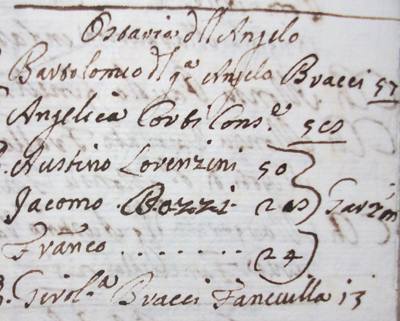 Osaria dll Angelo
Bartolomeo dl qº Angelo Bracci 57
Angelica Corbi Consᵉ 58
Austino Lorenzini 50
Jacomo Bozzi 28 Garzⁿⁱ
Franco . . . . . . . . 24
Girolª Bracci Fanciulla 13